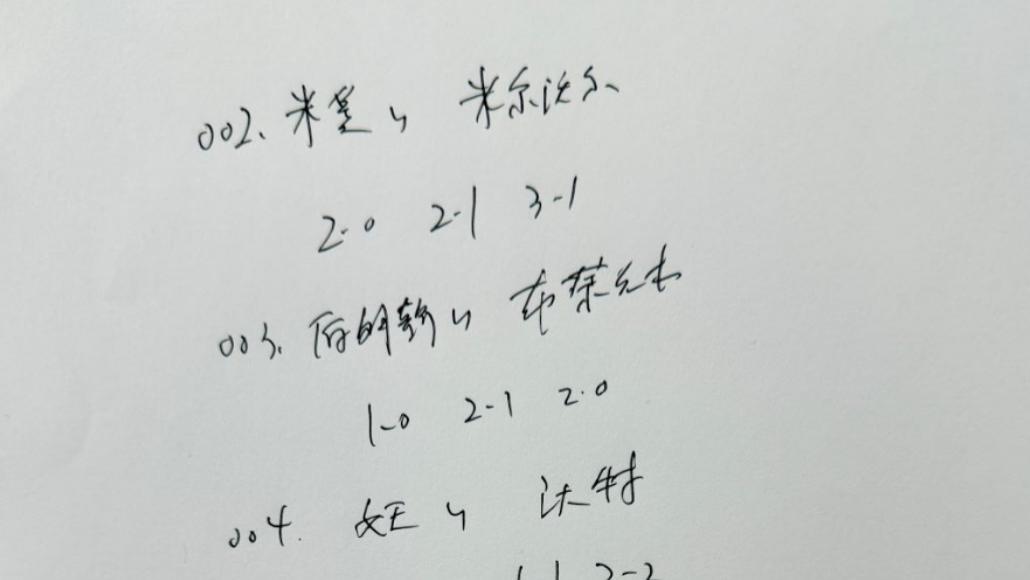 002. 米堡 vs 米尔沃尔
2-0 2-1 3-1
003. 伯明翰 vs 布莱克本
1-0 2-1 2-0
004. vs 沃特
1-1 2-2